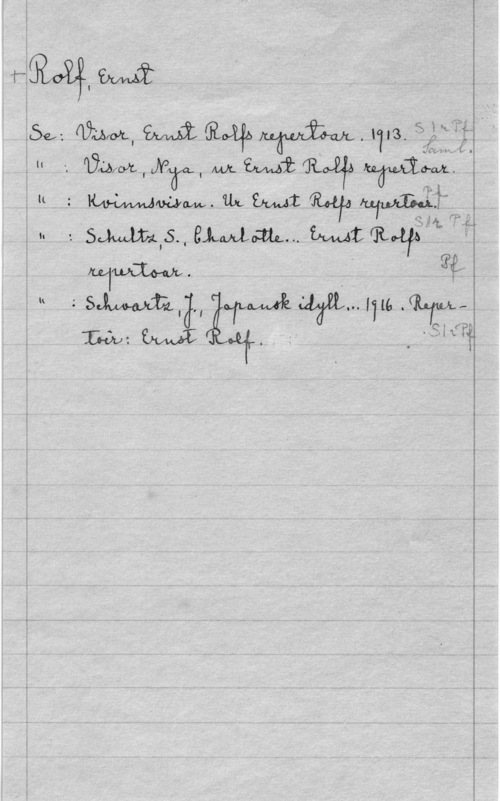 + Rolf, Ernst
Se: Visor, Ernst Rolfs repertoar. 1913. S1r Pf
Saml.
" : Visor, Nya, ur Ernst Rolfs repertoar.
" : Kvinnsvisan. Ur Ernst Rolfs repertoar. Pf
S1r Pf
" : Schultz, S., Charlotte... Ernst Rolfs
repertoar. Pf
" : Schwartz, J., Japansk idyll... 1916. Reper-
toir: Ernst Rolf. S1r Pf